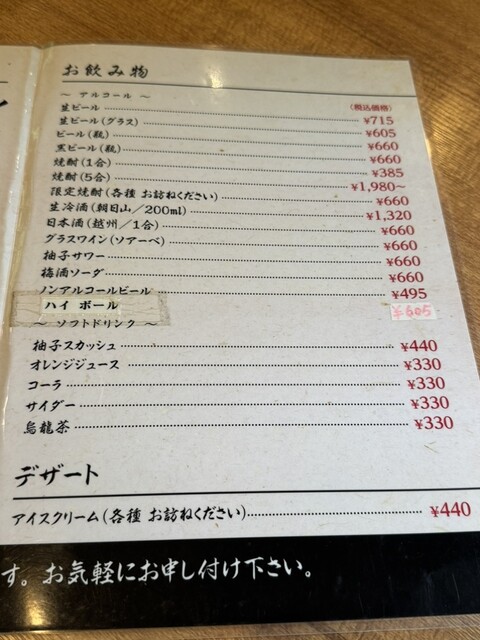 お飲み物
～ アルコール ～
(税込価格)
生ビール ¥715
生ビール(グラス) ¥605
ビール(瓶) ¥660
黒ビール(瓶) ¥660
焼酎(1合) ¥385
焼酎(5合) ¥1,980～
限定焼酎(各種 お訪ねください) ¥660
生冷酒(朝日山／200ml) ¥1,320
日本酒(越州／1合) ¥660
グラスワイン(ソアーベ) ¥660
柚子サワー ¥660
梅酒ソーダ ¥660
ノンアルコールビール ¥495
ハイ ボール ¥605
～ ソフトドリンク ～
柚子スカッシュ ¥440
オレンジジュース ¥330
コーラ ¥330
サイダー ¥330
烏龍茶 ¥330
デザート
アイスクリーム(各種 お訪ねください) ¥440
す。お気軽にお申し付け下さい。